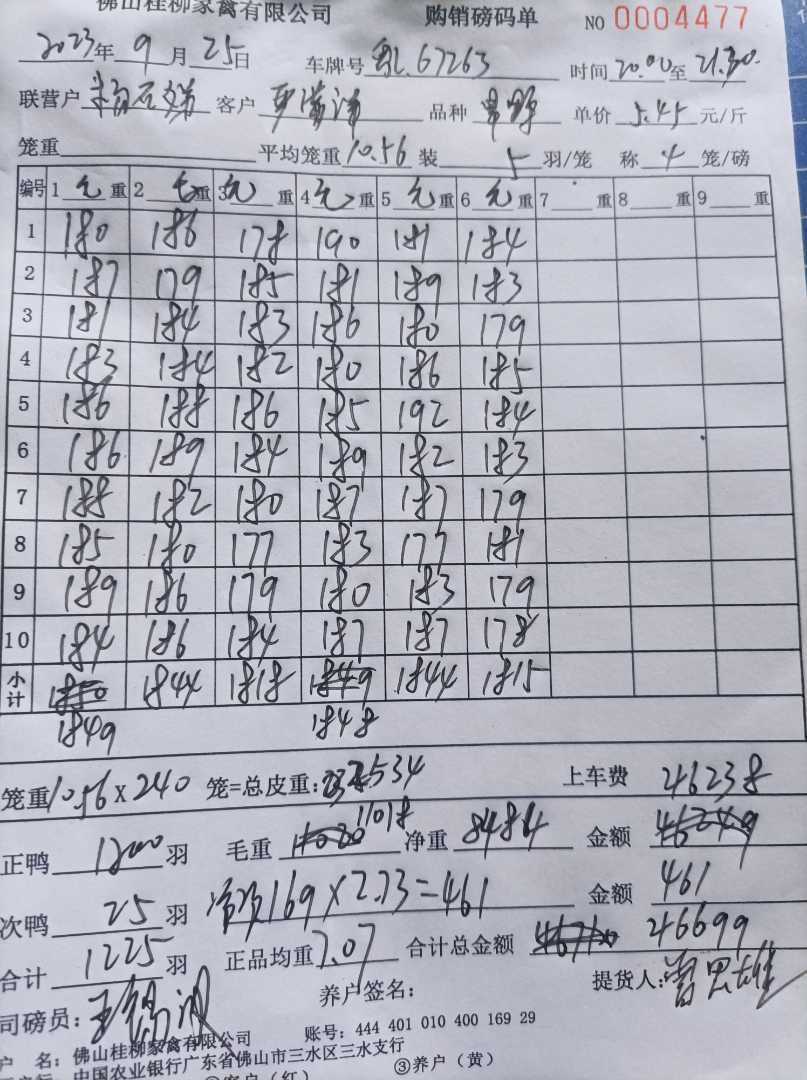 佛山桂柳家禽有限公司 购销磅码单 NO 0004477
2023年9月25日 车牌号 67263 时间20.00至21.30
联营户 客户 品种 单价5.45元/斤
笼重 平均笼重10.56装5羽/笼 称4笼/磅
编号 1 毛重 2 毛重 3 毛重 4 毛重 5 毛重 6 毛重 7 重 8 重 9 重
1 180 186 178 190 181 184
2 187 179 185 181 189 183
3 181 184 183 186 180 179
4 183 184 182 180 186 185
5 186 188 186 185 192 184
6 186 189 184 189 182 183
7 188 182 180 187 187 179
8 185 180 177 183 177 181
9 189 186 179 180 183 179
10 184 186 184 187 187 178
小计 1850 1844 1818 1849 1844 1815
1849 1848
笼重10.56×240笼=总皮重:2534 上车费 46238
正鸭1200羽 毛重 11018 净重8484 金额 46249
次鸭25羽 169×2.73=461 金额 461
合计1225羽 正品均重7.07 合计总金额 46699
司磅员: 养户签名: 提货人:
户 名:佛山桂柳家禽有限公司 账号:444 401 010 400 169 29
中国农业银行广东省佛山市三水区三水支行
②客户(红) ③养户(黄)